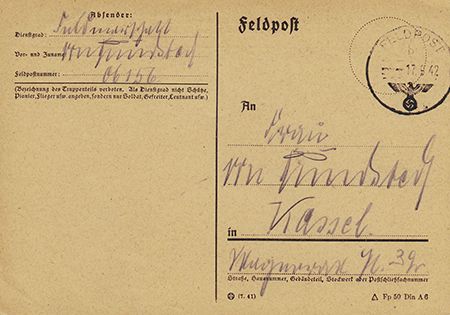 Absender:
Dienstgrad: Feldmarschall
Vor- und Zuname: von Rundstedt
Feldpostnummer: 06156
(Bezeichnung des Truppenteils verboten. Als Dienstgrad nicht Schütze,
Pionier, Flieger usw. angeben, sondern nur Soldat, Gefreiter, Leutnant usw.)
Feldpost
FELDPOST
b
17.9.42
An
Frau
von Rundstedt
in Kassel.
Straße, Hausnummer, Gebäudeteil, Stockwerk oder Postschließfachnummer
(7. 41)
Fp 50 Din A 6